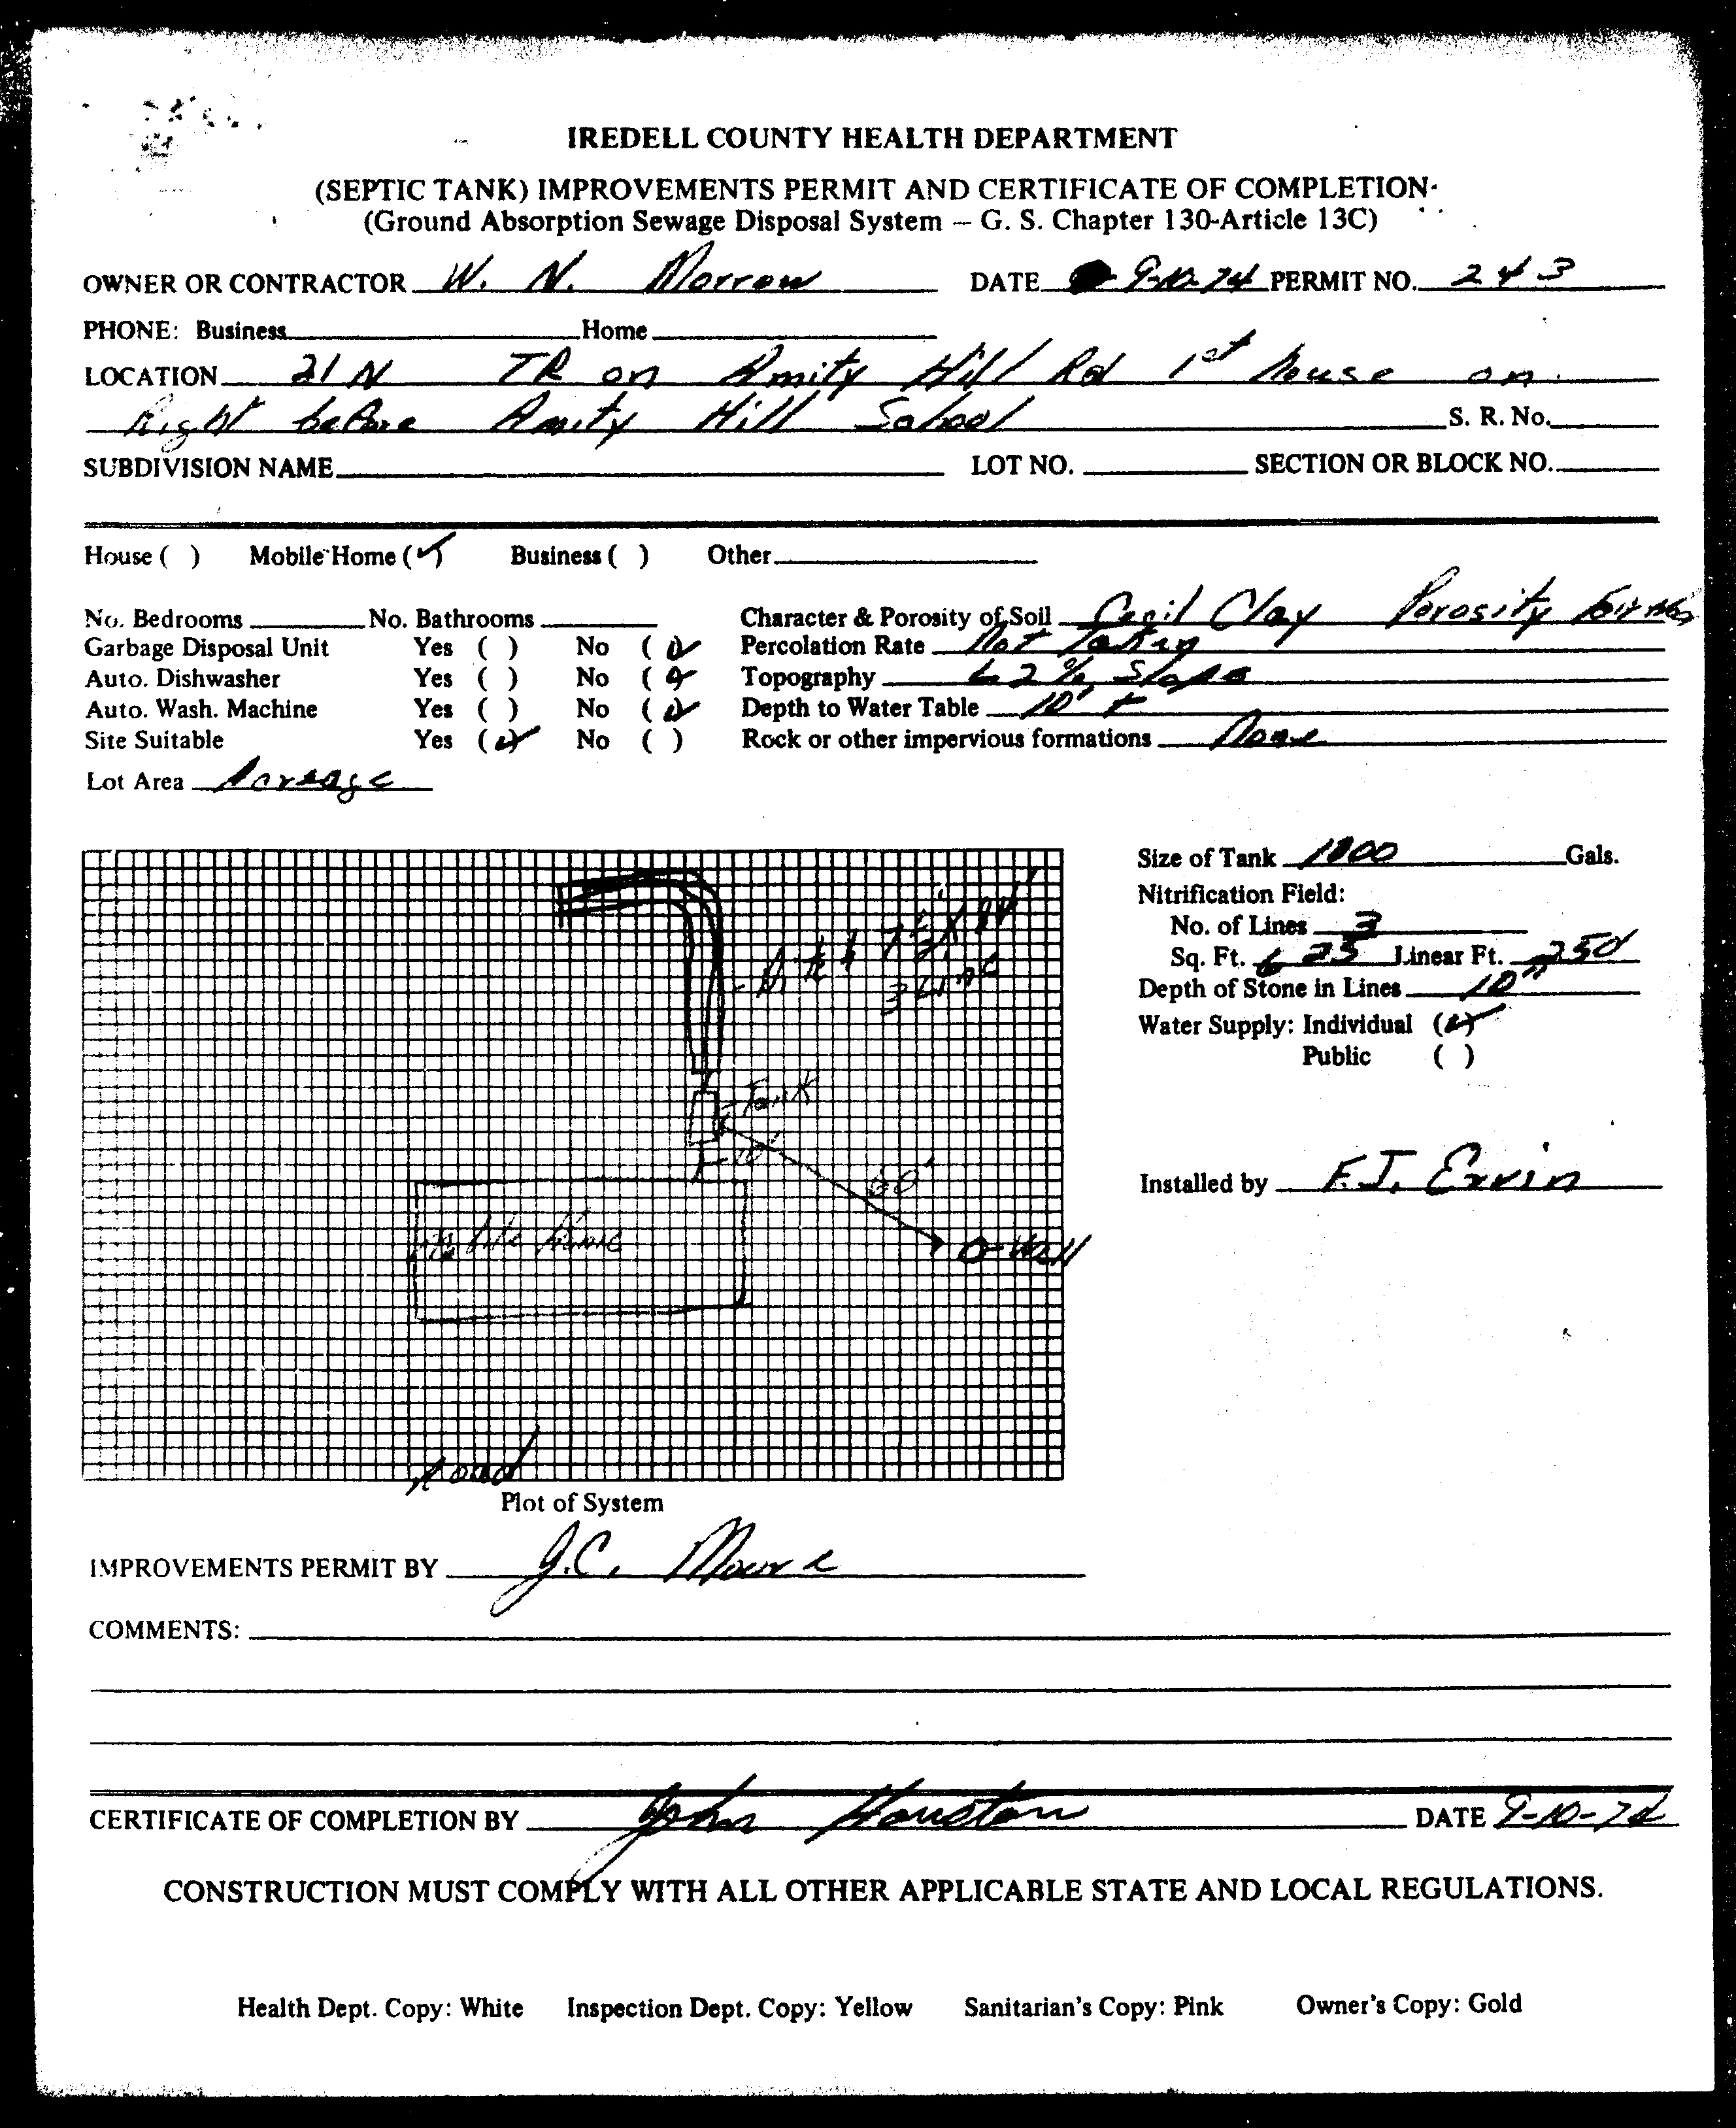 IREDELL COUNTY HEALTH DEPARTMENT
(SEPTIC TANK) IMPROVEMENTS PERMIT AND CERTIFICATE OF COMPLETION
(Ground Absorption Sewage Disposal System – G. S. Chapter 130-Article 13C)
OWNER OR CONTRACTOR W. N. Morrow DATE 9-10-74 PERMIT NO. 243
PHONE: Business Home
LOCATION 21 N TR on Amity Hill Rd 1st house on
Right before Amity Hill School S. R. No.
SUBDIVISION NAME LOT NO. SECTION OR BLOCK NO.
House ( ) Mobile Home (✓) Business ( ) Other
No. Bedrooms No. Bathrooms Character & Porosity of Soil Cecil Clay Porosity
Garbage Disposal Unit Yes ( ) No (✓) Percolation Rate Not Taking
Auto. Dishwasher Yes ( ) No (✓) Topography 2% Slope
Auto. Wash. Machine Yes ( ) No (✓) Depth to Water Table 10' +
Site Suitable Yes (✓) No ( ) Rock or other impervious formations None
Lot Area Acreage
Size of Tank 1000 Gals.
Nitrification Field:
No. of Lines 3
Sq. Ft. 625 Linear Ft. 250
Depth of Stone in Lines 10"
Water Supply: Individual (✓)
Public ( )
3 Line
Tank
10'
60'
Well
Mobile Home
Installed by F.J. Ervin
Road
Plot of System
IMPROVEMENTS PERMIT BY J.C. Moore
COMMENTS:
CERTIFICATE OF COMPLETION BY John Houston DATE 9-10-74
CONSTRUCTION MUST COMPLY WITH ALL OTHER APPLICABLE STATE AND LOCAL REGULATIONS.
Health Dept. Copy: White Inspection Dept. Copy: Yellow Sanitarian's Copy: Pink Owner's Copy: Gold